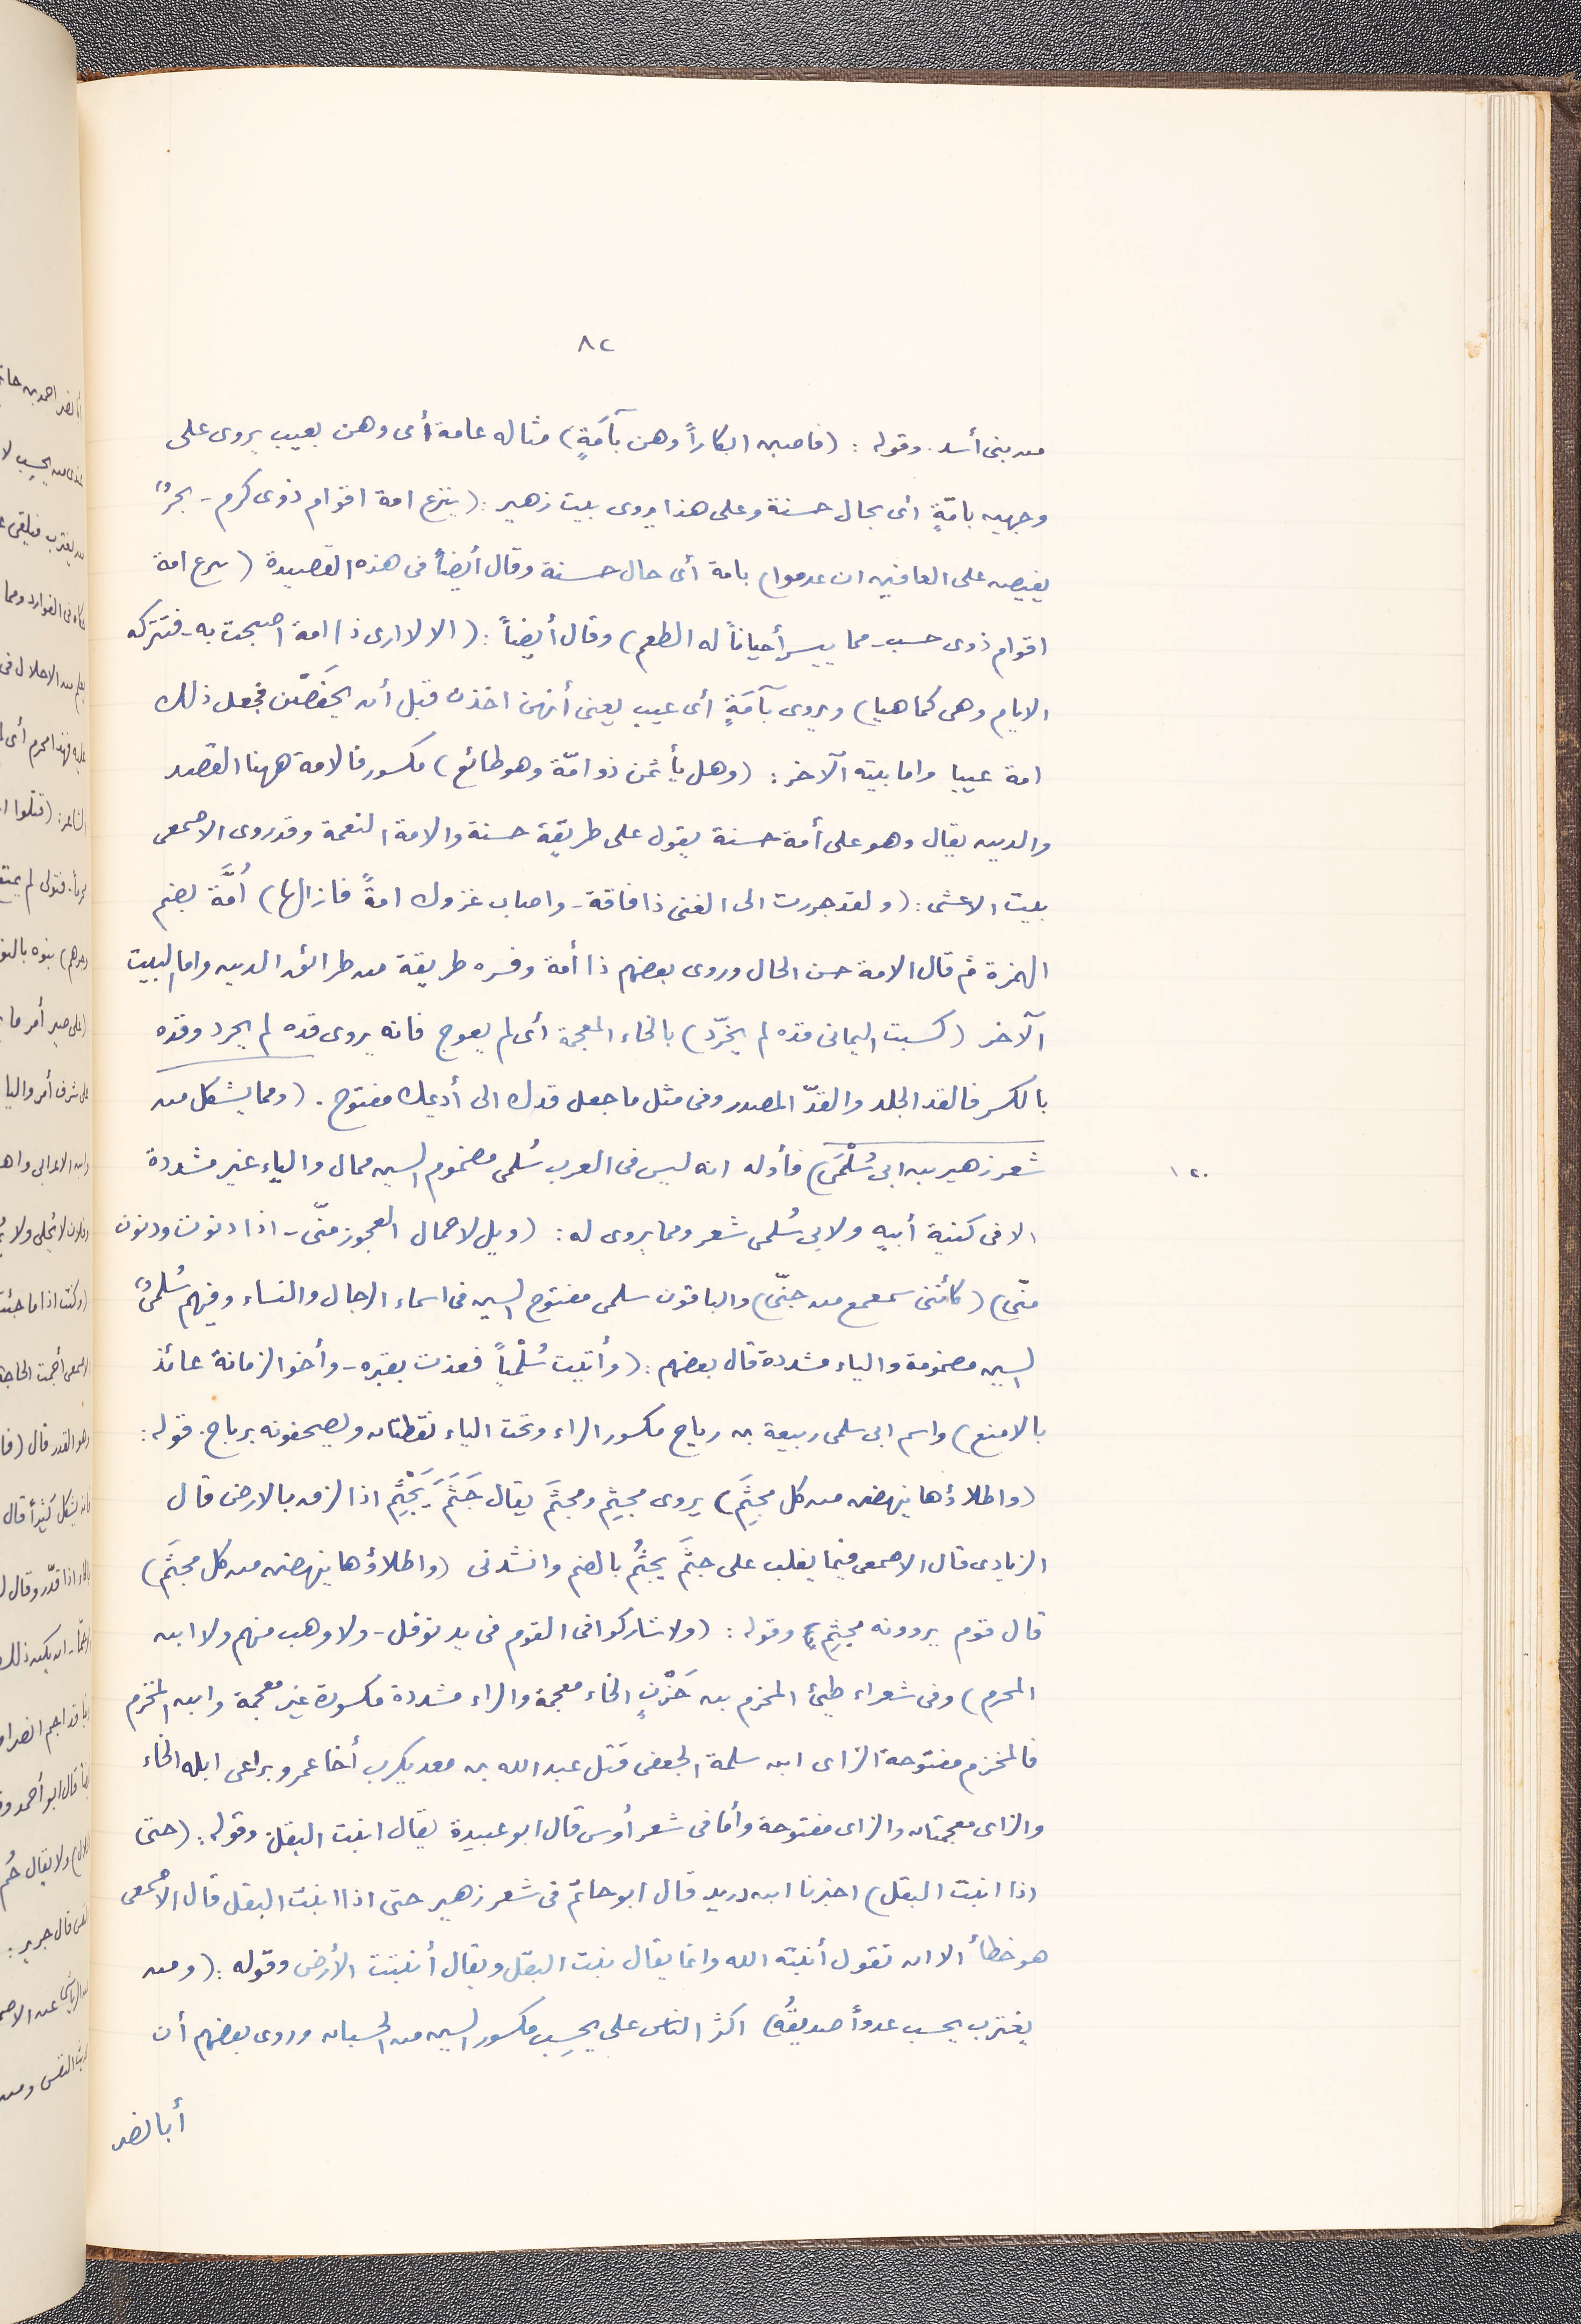 ٨٢
من بنى أسد. وقوله : (فاصبن ابكاراً وهن بآمَةٍ) مثاله عامة أى وهن بعيب يروى على
وجهين بامّةٍ اى بحال حسنة وعلى هذا يروى بيت زهير : (ينزع امة اقوام ذوى كرم - بحرٌ
يفيض على العافين ان عدموا) بامة أى حال حسنة وقال أيضاً فى هذه القصيدة (ينزع امة
اقوام ذوى حسب - مما ييسر أحياناً له الطعم) وقال أيضاً : (الا لا ارى ذا امة اصبحت به - فتتركه
الايام وهى كما هيا) ويروى بآمَةٍ أى عيب يعنى أنهن اخذن قبل أن يخفَضْن فجعل ذلك
امة عيبا واما بيته الآخر : (وهل يأثمن ذو امّة وهو طائع) مكسور فالامة ههنا القصد
والدين يقال وهو على أمة حسنة يقول على طريقة حسنة والامة النعمة وقد روى الاصمعى
بيت الاعشى : (ولقد جررت الى الغنى ذا فاقة - واصاب غزوك امةً فازالها) أُمَّة بضم
الهمزة ثم قال الامة حسن الحال وروى بعضهم ذا أمة وفسره طريقة من طرائق الدين واما البيت
الآخر (كسبت اليمانى قده لم يخرّد) بالخاء المعجمة أى لم يعوج فانه يروى قده لم يجرد وقده
بالكسر فالقد الجلد والقدّ المصدر وفى مثل ما جعل قدك الى أديمك مفتوح . (ومما يشكل من
شعر زهير بن ابى سُلْمَى) فأوله انه ليس فى العرب سُلمى مضموم السين ممال والياء غير مشددة
١٢٠
الا فى كنية أبيه ولابى سُلمى شعر ومما يروى له : (ويل لاحمال العجوز منّى - اذا دنوت ودنون
منّى) (كأننى سمعمع من جنّى) والباقون سلمى مفتوح السين فى اسماء الرجال والنساء وفيهم سُلمىٌ
السين مضمومة والياء مشددة قال بعضهم : (وأتيت سُلْمياً فعذت بقبره - وأخو الزمانة عائذ
بالامنع) واسم ابى سلمى ربيعة بن رياح مكسور الراء وتحت الياء نقطتان ويصحفونه برباح . قوله :
(واطلاؤها ينهضن من كل مجثِمَ) يروى مجثِم ومجثَم يقال جَثَمَ يَجْثِم اذا لزق بالارض قال
الزيادى قال الاصمعى فيما يغلب على جثَم يجثُم بالضم وانشدنى (واطلاؤها ينهضن من كل مجثَم)
قال قوم يروونه مجثِم وقوله : (ولا شاركوا فى القوم فى يد نوفل - ولا وهب منهم ولا ابن
المحرم) وفى شعراء طيئ المخرم بن حَزْنٍ الخاء معجمة والراء مشددة مكسورة غير معجمة وابن المخزم
فالمخزم مفتوحة الزاى ابن سلمة الجعفى قتل عبد الله بن معد يكرب أخا عمرو براعى ابله الخاء
والزاى معجمتان والزاى مفتوحة وأما فى شعر أوس قال ابو عبيدة يقال انبت البقل وقوله : (حتى
اذا انبت البقل) اخبرنا ابن دريد قال ابو حاتم فى شعر زهير حتى اذا انبت البقل قال الاصمعى
هو خطأ الا ان تقول أنبته الله وانما يقال نبت البقل ويقال أنبتت الأرض وقوله : (ومن
يغترب يحسب عدواً صديقُه) اكثر الناس على يحسِب مكسور السين من الحسبان وروى بعضهم أن
أبا نصر